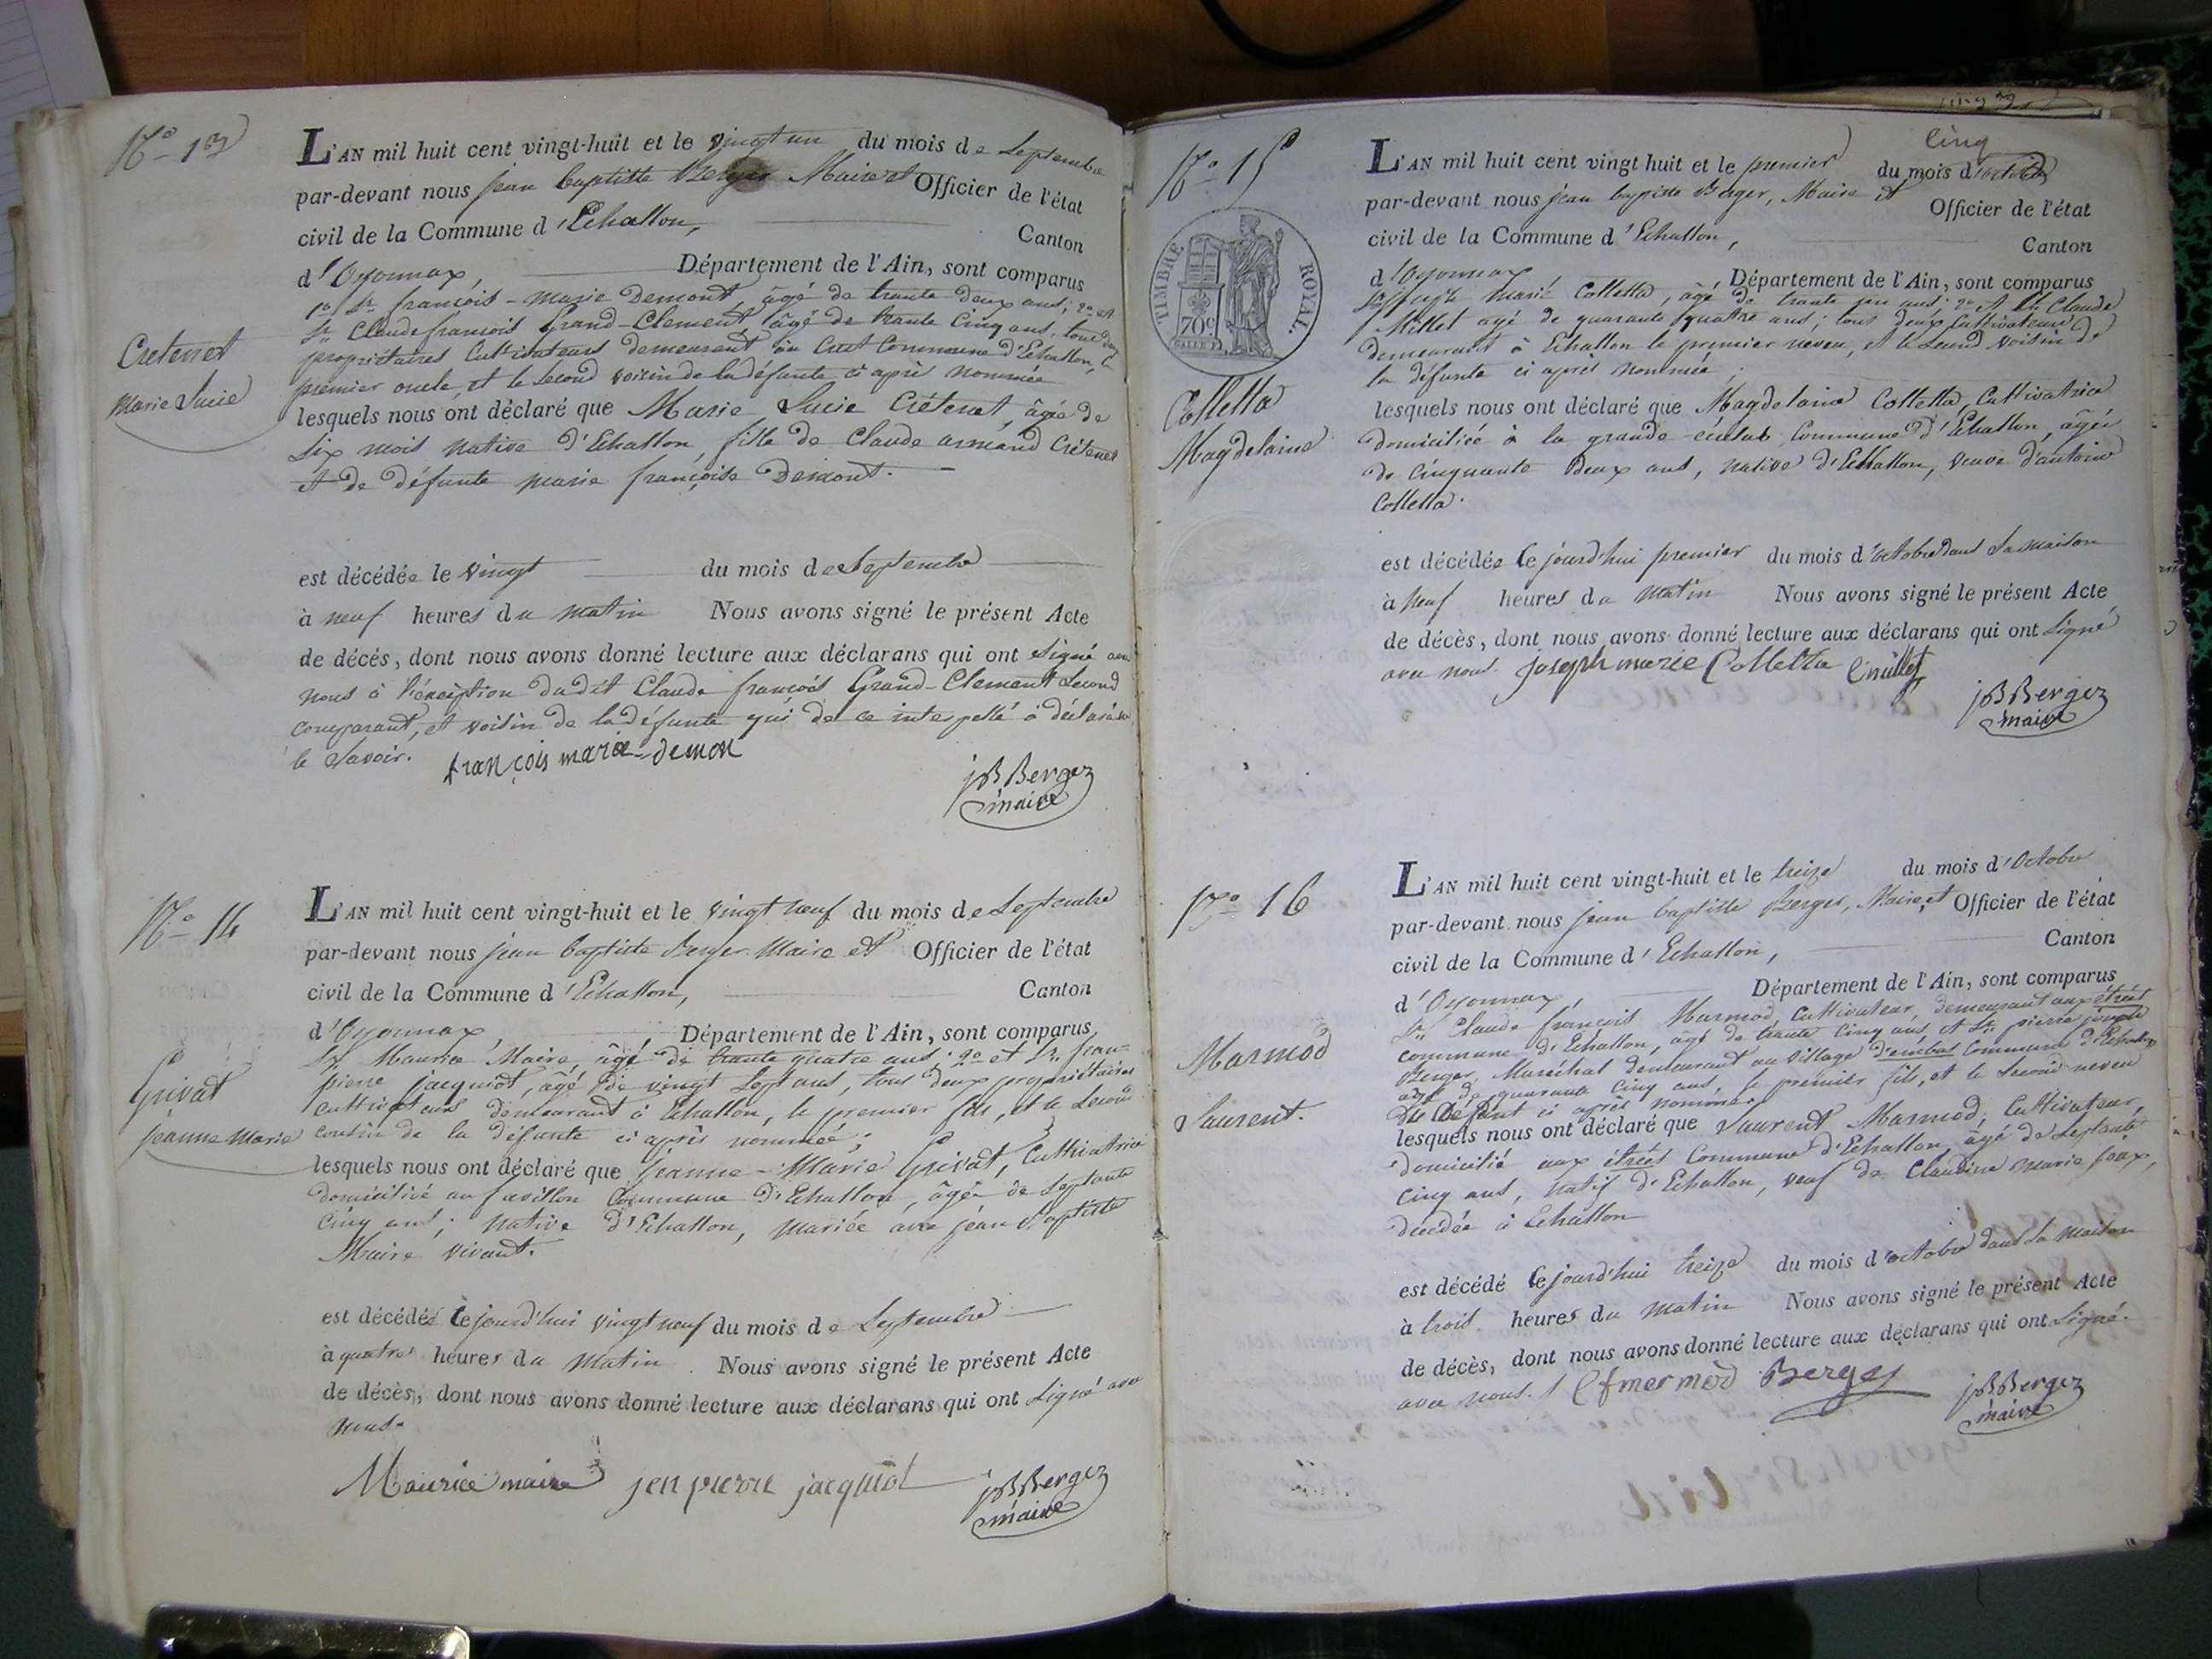 N.o 13
L'AN mil huit cent vingt-huit et le vingt un du mois de Septembre
par-devant nous jean baptiste Berger Maire et Officier de l'état
civil de la Commune d'Echallon, Canton
d'Oyonnax, Département de l'Ain, sont comparus
1o Sr. françois-marie Demont, âgé de trante deux ans; 2o et
Sr. Claude françois Grand-Clement, âgé de trante Cinq ans, tous deux
propriétaires Cultivateurs demeurant au Cret Commune d'Echallon, le
premier oncle, et le Second voisin de la défunte ci après nommée
Cretenet
Marie Lucie
lesquels nous ont déclaré que Marie Lucie Crétenet, âgée de
Six mois native d'Echallon, fille de Claude armand Crétenet
et de défunte marie françoise Demont.
est décédée le vingt du mois de Septembre
à neuf heures du matin Nous avons signé le présent Acte
de décés, dont nous avons donné lecture aux déclarans qui ont signé avec
nous à l'éxception dudit Claude françois Grand-Clement Second
comparant, et voisin de la défunte qui de ce interpellé à déclaré ne
le Savoir. françois marie-demon
jB Berger
maire
N.o 14
L'AN mil huit cent vingt-huit et le vingt neuf du mois de Septembre
par-devant nous jean baptiste Berger Maire et Officier de l'état
civil de la Commune d'Echallon, Canton
d'Oyonnax Département de l'Ain, sont comparus
Sr. Maurice Maire, âgé de trante quatre ans; 2o et Sr. jean-
pierre jacquiot, âgé de vingt Sept ans, tous deux propriétaires
cultivateurs, demeurant à Echallon, le premier fils, et le Second
cousin de la défunte ci après nommée;
Grivat
jeanne Marie
lesquels nous ont déclaré que jeanne-Marie Grivat, Cultivatrice
domiciliée au favillon Commune d'Echallon, âgée de Septante
Cinq ans; native d'Echallon, mariée avec jean Baptiste
Maire vivant.
est décédée Cejourd'hui vingt neuf du mois de Septembre
à quatre heures du matin. Nous avons signé le présent Acte
de décès, dont nous avons donné lecture aux déclarans qui ont signé avec
nous.
Maurice maire jen pierre jacquiot jB Berger
maire
Cinq
N.o 15
L'AN mil huit cent vingt huit et le premier du mois d'octobre
par-devant nous jean baptiste Berger, Maire et Officier de l'état
civil de la Commune d'Echallon, Canton
d'Oyonnax Département de l'Ain, sont comparus
TIMBRE ROYAL.
70c
Joseph Marie Colletta, âgé de trante un ans; 2o et Sr. Claude
Millet âgé de quarante quatre ans; tous deux Cultivateurs
demeurant à Echallon le premier neveu, et le Second voisin de
la défunte ci après nommée;
Colletta
Magdelaine
lesquels nous ont déclaré que Magdelaine Colletta, Cultivatrice
domiciliée à la grande Commune d'Echallon, âgée
de Cinquante Deux ans, native d'Echallon, veuve d'antoine
Colletta.
est décédée Cejourd'hui premier du mois d'octobre dans Sa maison
à Neuf heures du matin Nous avons signé le présent Acte
de décès, dont nous avons donné lecture aux déclarans qui ont Signé
avec nous. joseph marie Colletta Cmillet
jB Berger
maire
N.o 16
L'AN mil huit cent vingt-huit et le treize du mois d'Octobre
par-devant nous jean baptiste Berger, Maire et Officier de l'état
civil de la Commune d'Echallon, Canton
d'Oyonnax, Département de l'Ain, sont comparus
Sr. Claude françois Marmod, Cultivateur, demeurant aux étrêts
commune d'Echallon, âgé de trante Cinq ans, et Sr. pierre joseph
Berger, Maréchal demeurant au village d'embas Commune d'Echallon
âgé de quarante Cinq ans, le premier fils, et le Second neveu
du Défunt ci après nommé.
Marmod
Laurent.
lesquels nous ont déclaré que Laurent Marmod, Cultivateur,
domicilié aux étrêts Commune d'Echallon, âgé de Septante
Cinq ans, natif d'Echallon, veuf de Claudine Marie
décédée à Echallon
est décédé Cejourd'hui treize du mois d'octobre dans Sa maison
à trois heures du matin Nous avons signé le présent Acte
de décès, dont nous avons donné lecture aux déclarans qui ont Signé.
avec nous. Cfmermod Berger
jB Berger
maire